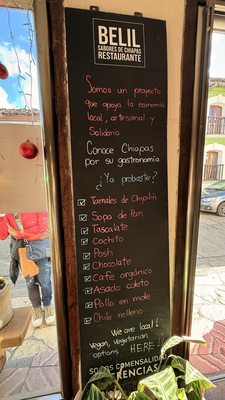 BELIL
SABORES DE CHIAPAS
RESTAURANTE
Somos un proyecto
que apoya la economía
local, artesanal y
Solidaria
Conoce Chiapas
por su gastronomía
¿Ya probaste?
Tamales de Chipilín
Sopa de Pan
Tascalate
Cochito
Posh
Chocolate
Cafe orgánico
Asado coleto
Pollo en mole
Chile relleno
We are local!!
Vegan, vegetarian
options HERE!
SOMOS COMENSALIDAD